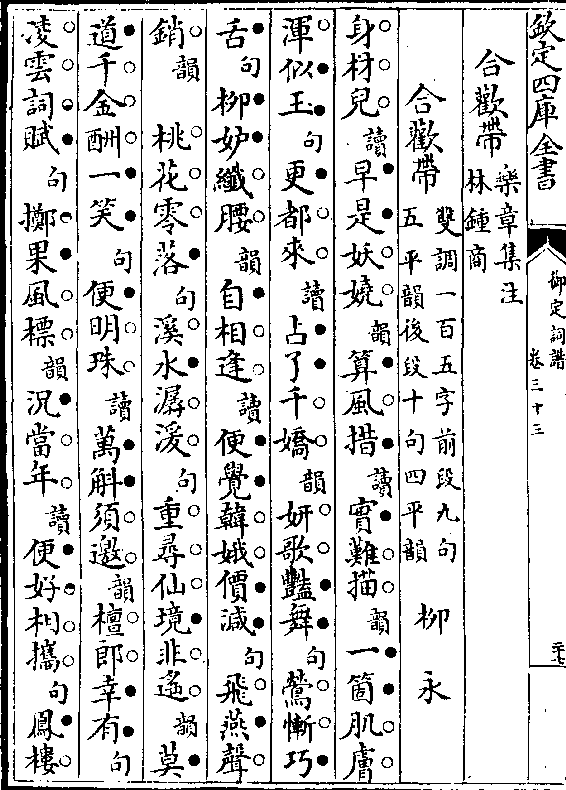 欽定四庫全書
御定詞譜
卷三十三
二十七
合歡帶
樂章集注
林鍾商
合歡帶
雙調一百五字前段九句
五平韻後段十句四平韻
柳永
身材兒讀早是妖嬈韻算風措讀實難描韻一箇肌膚
渾似玉句更都來讀占了千嬌韻妍歌豔舞句鶯慚巧
舌句柳妒纖腰韻自相逢讀便覺韓娥價減句飛燕聲
銷韻桃花零落句溪水潺湲句重尋仙境非遙韻莫
道千金酬一笑句便明珠讀萬斛須邀韻檀郎幸有句
凌雲詞賦句擲果風標韻況當年讀便好相攜句鳳樓